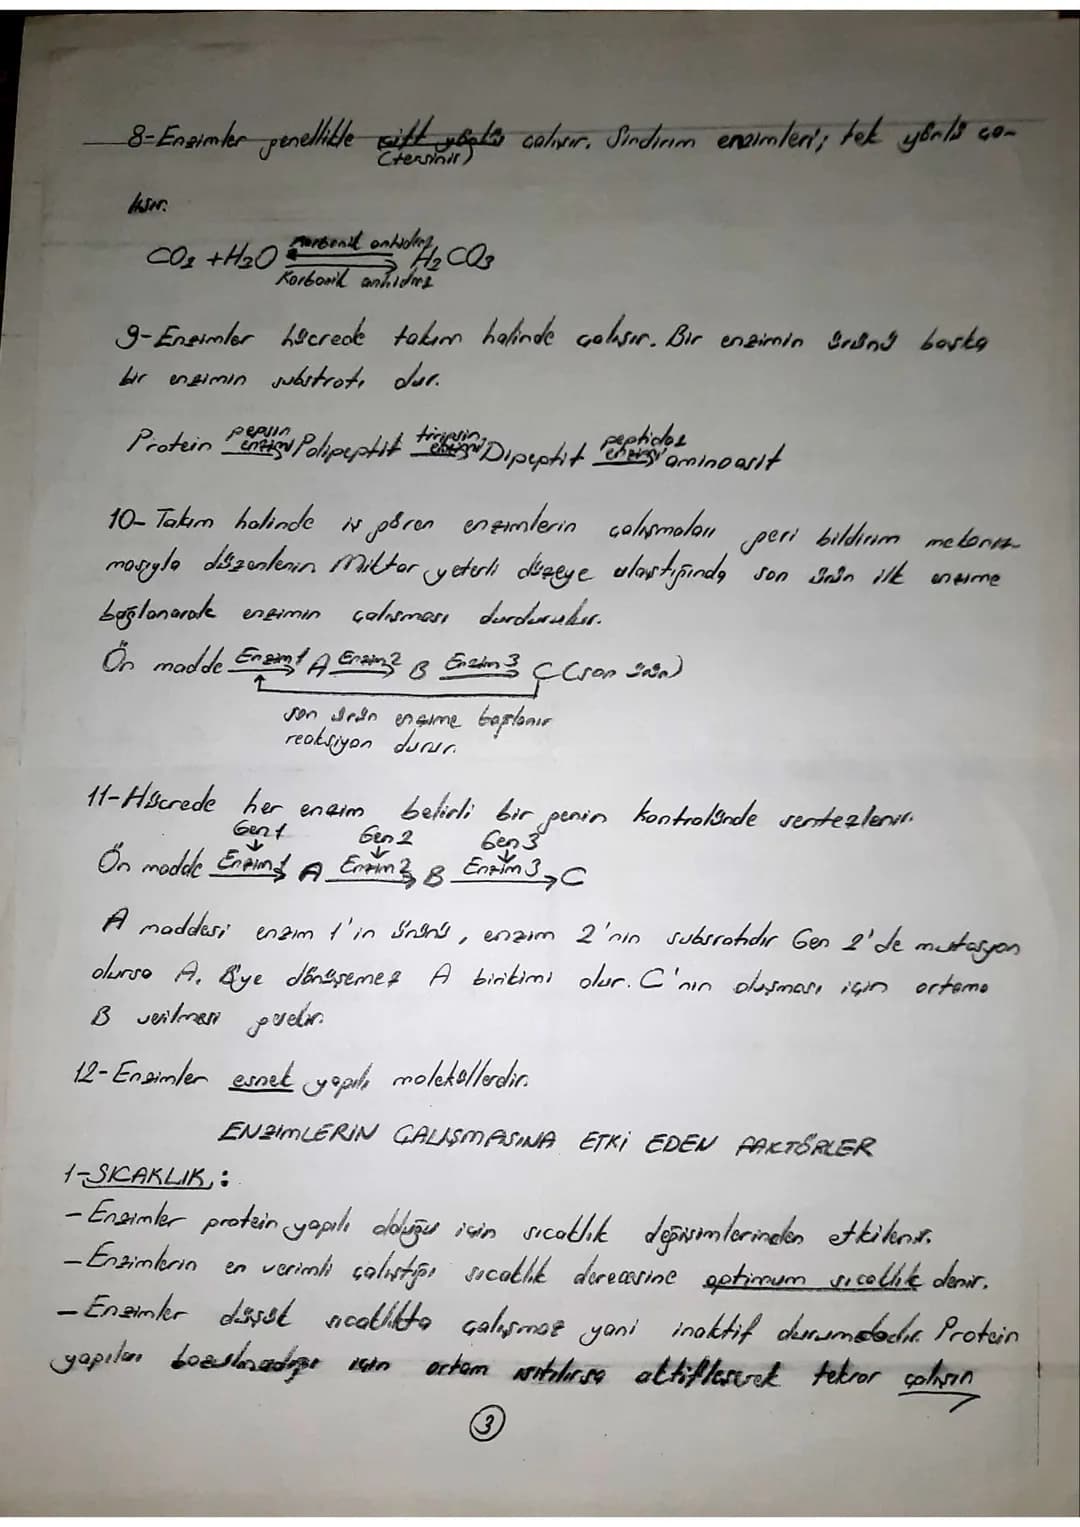 8-Enzimler genellikle çift yönlü çalışır. Sindirim enzimleri; tek yönlü ça-
(tersinir)
lışır.
karbonik anhidraz
CO2 + H2O H2CO3
Karbonik anhidraz
9-Enzimler hücrede takım halinde çalışır. Bir enzimin ürünü başka
bir enzimin substratı dur.
Protein pepsin enzimi Polipeptit tiripsin enzimi Dipeptit peptidaz enzimi aminoasit
10- Takım halinde iş gören enzimlerin çalışmaları geri bildirim mekaniz-
masıyla düzenlenir. Miktar yeterli düzeye ulaştığında son ürün ilk enzime
bağlanarak enzimin çalışması durdurulur.
Ön madde Enzim1 A Enzim2 B Enzim3 C (son ürün)
son ürün enzime bağlanır
reaksiyon durur.
11-Hücrede her enzim belirli bir genin kontrolünde sentezlenir.
Gen1 Gen2 Gen3
Ön madde Enzim1 A Enzim2 B Enzim3 C
A maddesi enzim 1'in ürünü, enzim 2'nin subsratıdır Gen 2'de mutasyon
olursa A, B'ye dönüşemez A birikimi olur. C'nın oluşması için ortama
B verilmesi gerekir.
12-Enzimler esnek yapılı moleküllerdir.
ENZİMLERİN ÇALIŞMASINA ETKİ EDEN FAKTÖRLER
1-SICAKLIK:
- Enzimler protein yapılı olduğu için sıcaklık değişimlerinden etkilenir.
- Enzimlerin en verimli çalıştığı sıcaklık derecesine optimum sıcaklık denir.
- Enzimler düşük sıcaklıkta çalışmaz yani inaktif durumdadır. Protein
yapıları bozulmadığı için ortam ısıtılırsa aktifleşerek tekrar çalışır
3